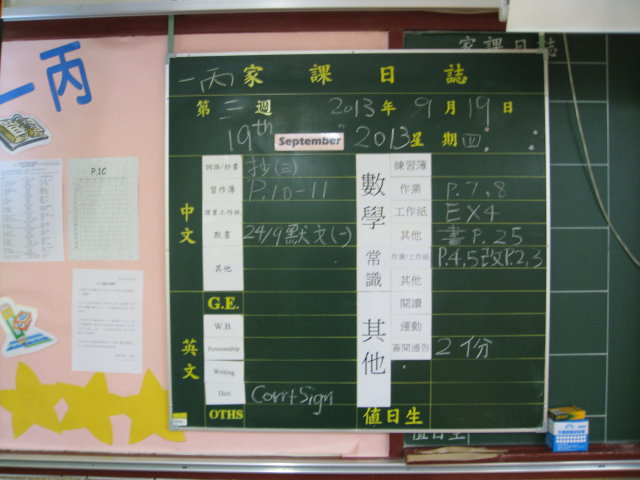 一丙
P.1C
家課日誌
一丙 家課日誌
第三週 2013年9月19日
19th September 2013 星期四
詞語/抄書 抄(二)
習作簿 P.10-11
中文
默書 24/9默文(一)
其他
G.E.
英文
W.B.
Penmanship
Writing
Dict. Corr+Sign
OTHS
數學
練習簿
作業 P.7,8
工作紙 EX4
其他 書P.25
常識
作業/工作紙 P.4,5改P.2,3
其他
其他
閱讀
運動
簽閱通告 2份
值日生
值日生